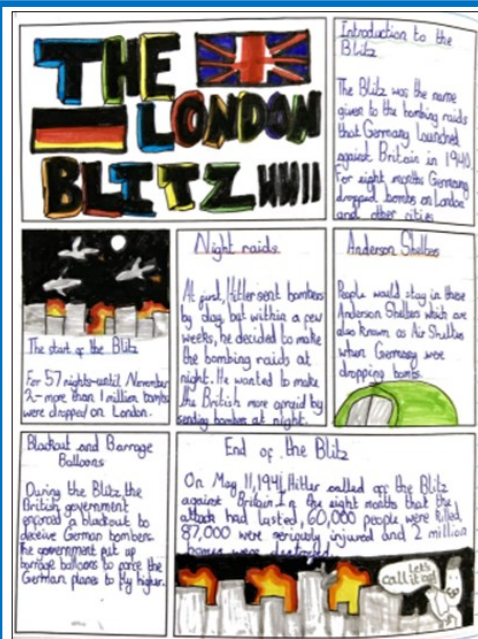 THE
LONDON
BLITZ WWII
Introduction to the
Blitz
The Blitz was the name
given to the bombing raids
that Germany launched
against Britain in 1940.
For eight months Germany
dropped bombs on London
and other cities
The start of the Blitz
For 57 nights-until November
2-more than 1 million bombs
were dropped on London.
Night raids
At first, Hitler sent bombers
by day, but within a few
weeks, he decided to make
the bombing raids at
night. He wanted to make
the British more afraid by
sending bombers at night.
Anderson Shelters
People would stay in these
Anderson Shelters which are
also known as Air Shelters
when Germany were
dropping bombs.
Blackout and Barrage
Balloons
During the Blitz, the
British government
enforced a blackout to
deceive German bombers.
he government put up
barrage balloons to force the
German planes to fly higher.
End of the Blitz
On May 11, 1941, Hitler called off the Blitz
against Britain. In the eight months that the
attack had lasted, 60,000 people were killed,
87,000 were seriously injured and 2 million
homes were destroyed.
Let's
call it off!